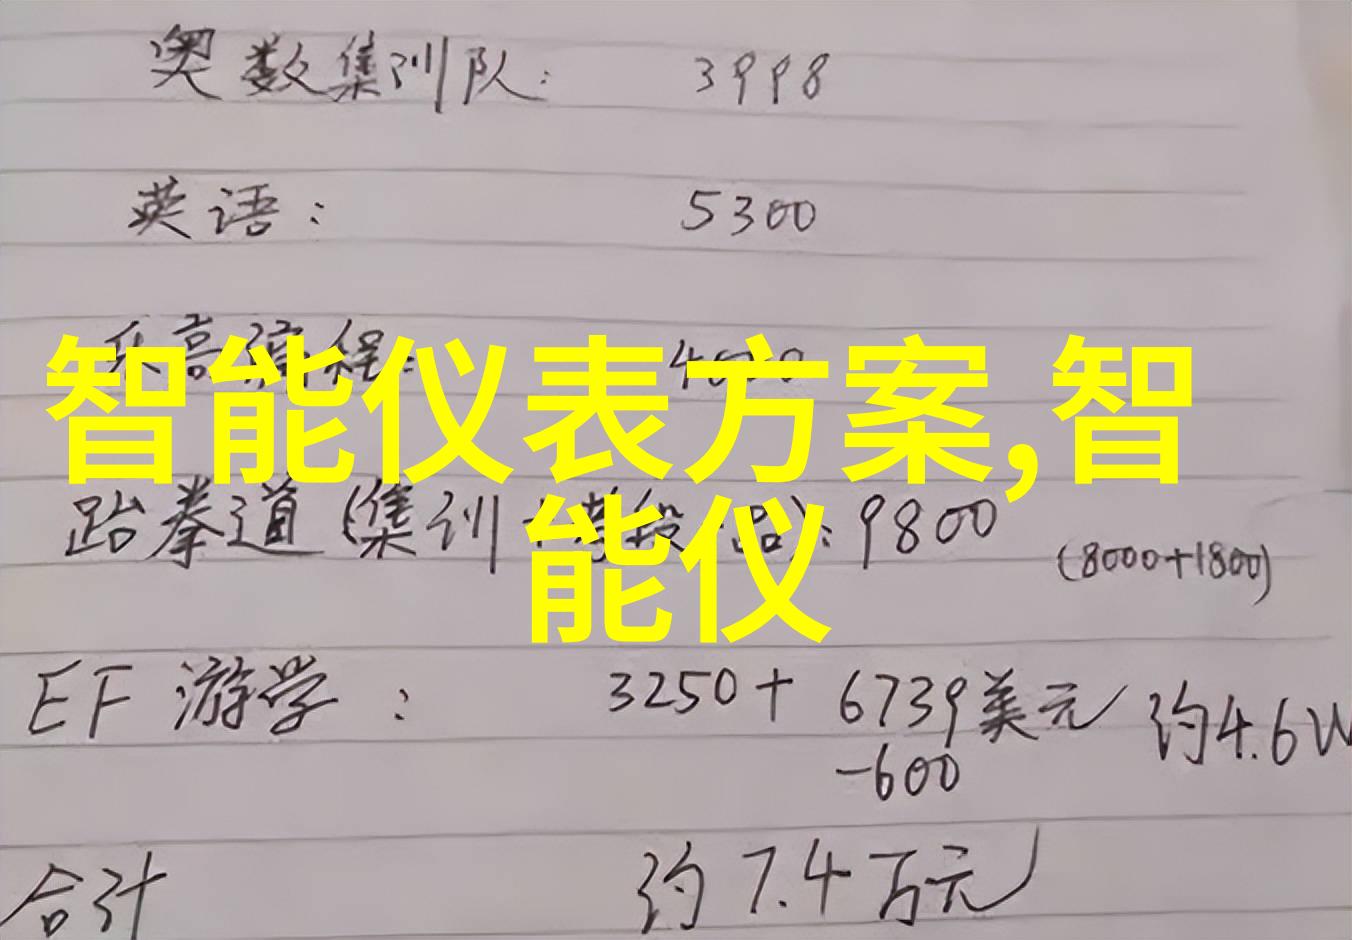 奥数集训队: 3998
英语: 5300
乐高编程: 4000
智能仪表方案,智
能仪
跆拳道(集训+考段一路): 9800
(8000+1800)
EF 游学: 3250+ 6739美元 约4.6W
-600
合计 约7.4万元